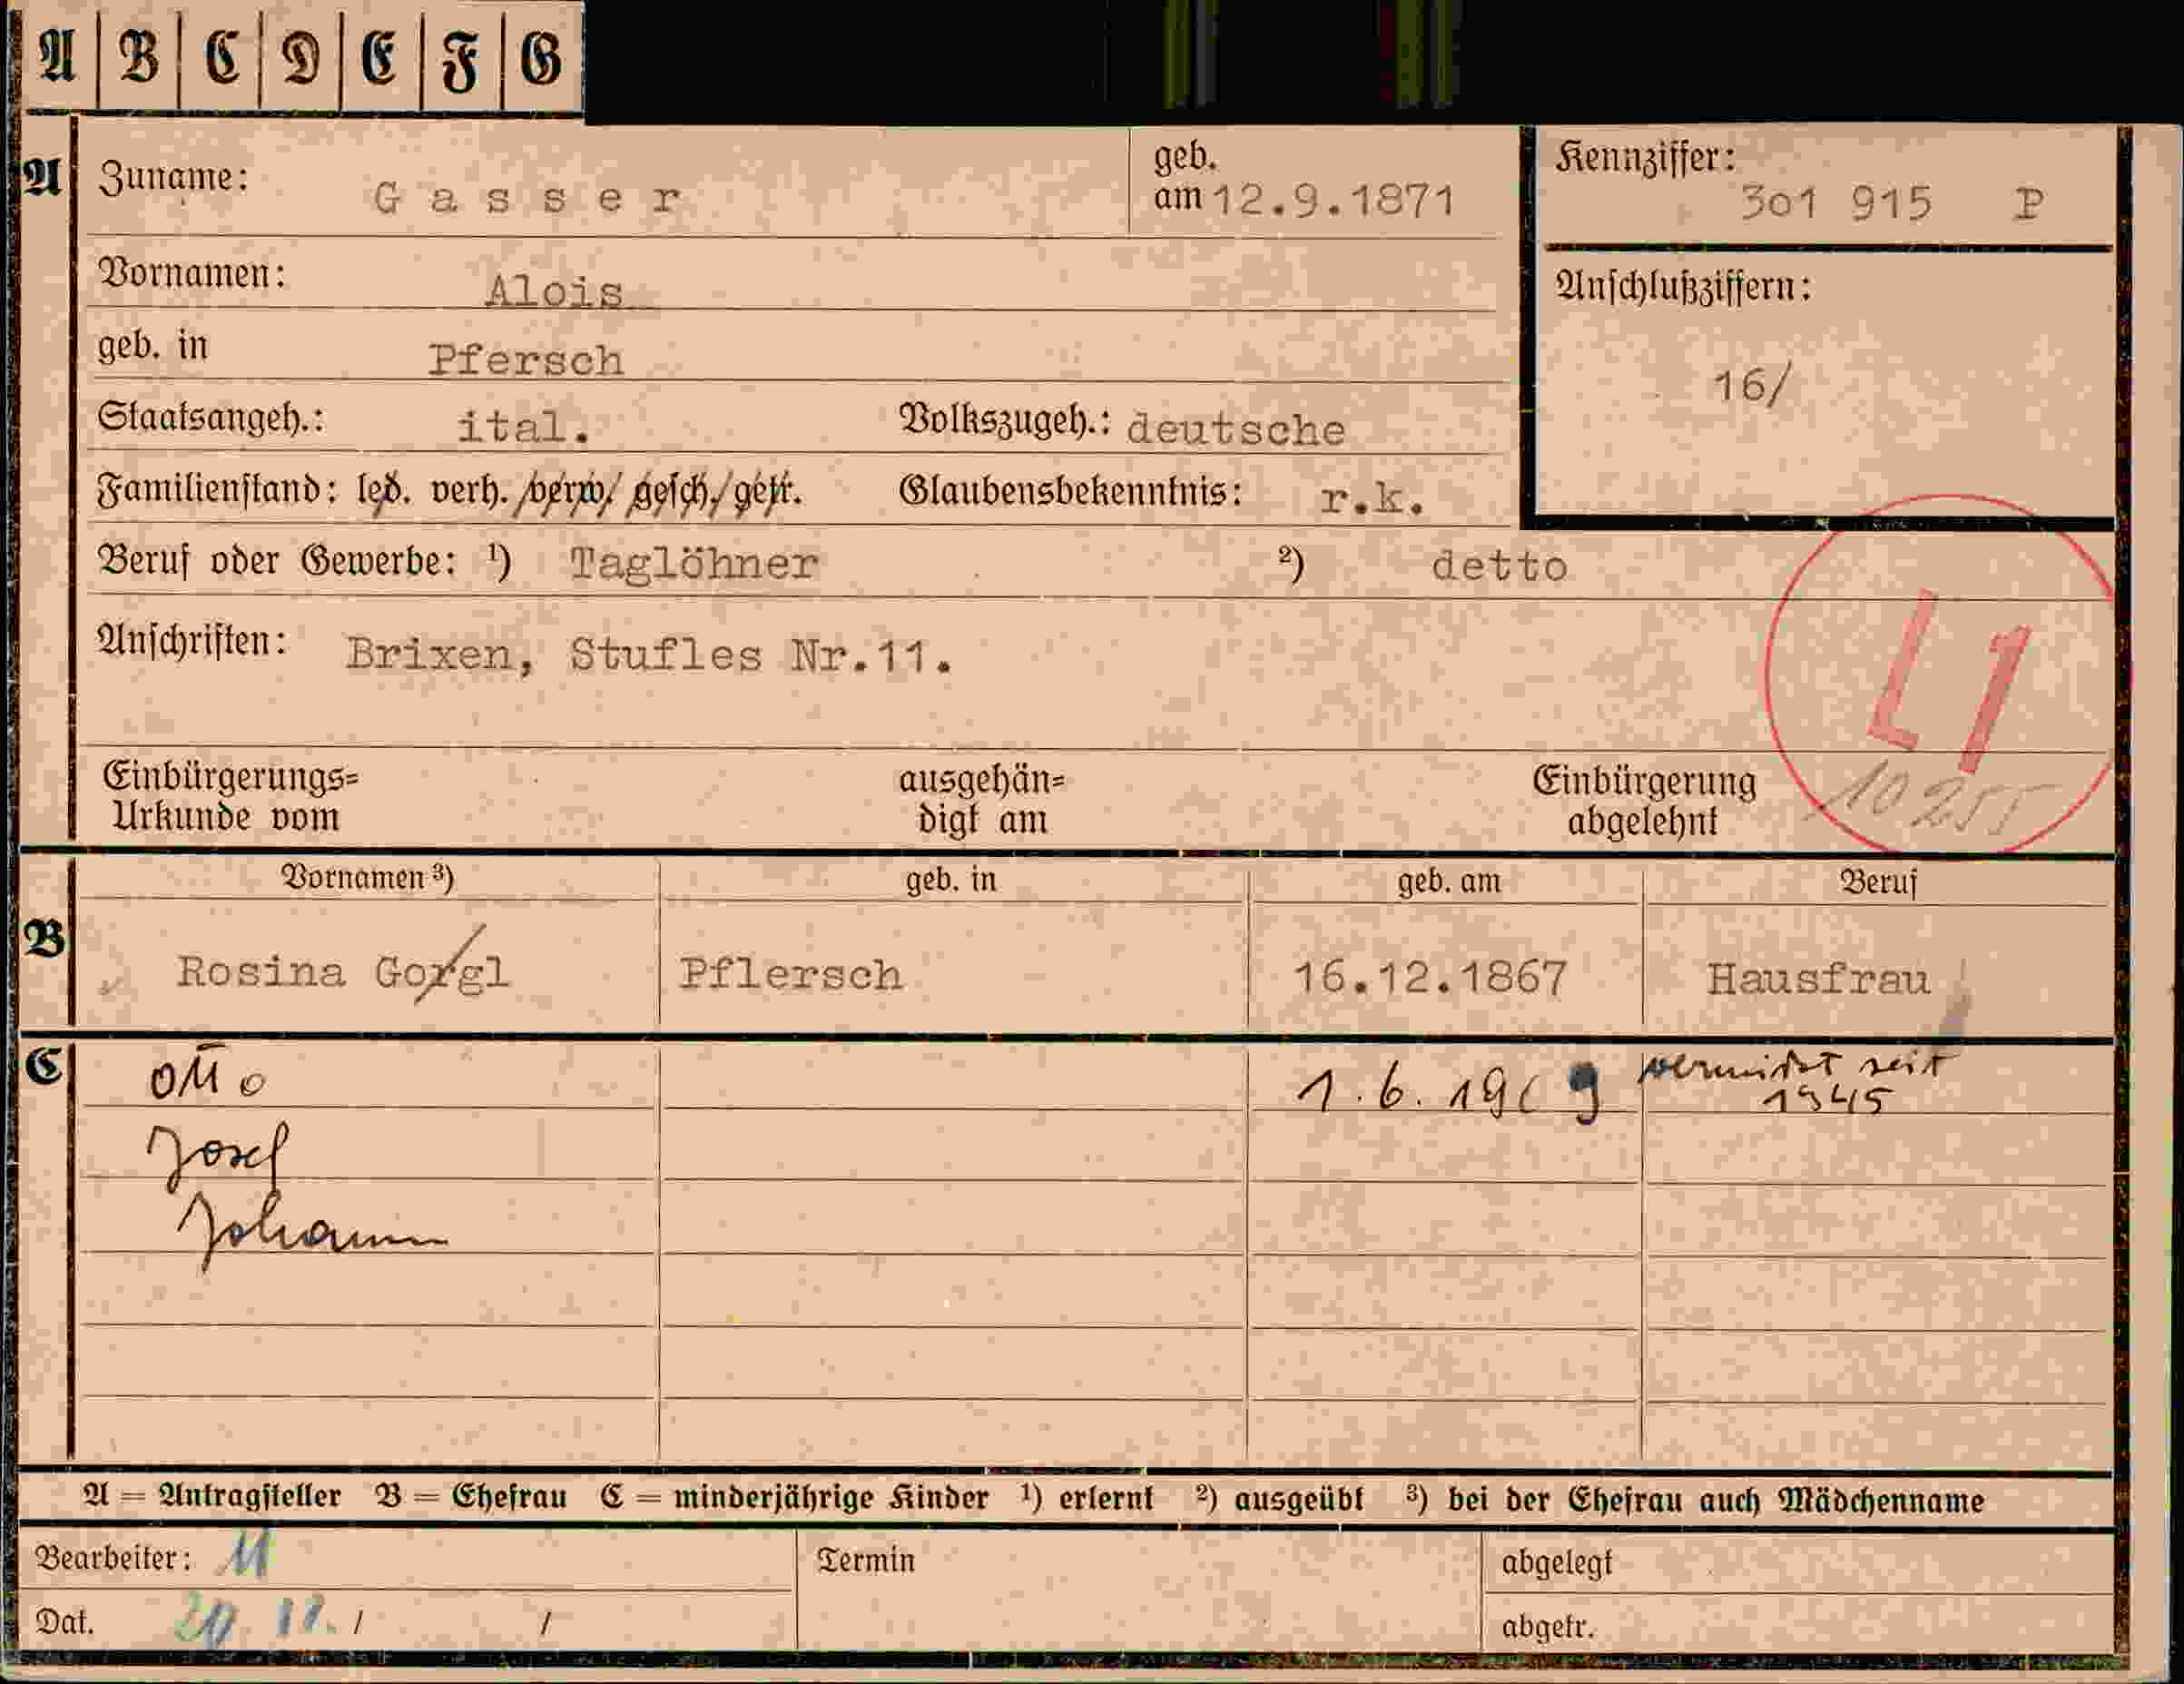 A B C D E F G
A Zuname: Gasser geb. am 12.9.1871 Kennziffer: 301 915 P
Vornamen: Alois Anschlußziffern:
geb. in Pfersch 16/
Staatsangeh.: ital. Volkszugeh.: deutsche
Familienstand: led. verh. verw. gesch. getr. Glaubensbekenntnis: r.k.
Beruf oder Gewerbe: ¹) Taglöhner ²) detto
Anschriften: Brixen, Stufles Nr.11.
L1
Einbürgerungs= Urkunde vom ausgehän= digt am Einbürgerung abgelehnt 10255
Vornamen ³) geb. in geb. am Beruf
B Rosina Gorgl Pflersch 16.12.1867 Hausfrau
C Otto 1.6.1909 vermisst seit 1945
Josef
Johann
A = Antragsteller B = Ehefrau C = minderjährige Kinder ¹) erlernt ²) ausgeübt ³) bei der Ehefrau auch Mädchenname
Bearbeiter: Termin abgelegt
Dat. / / abgetr.